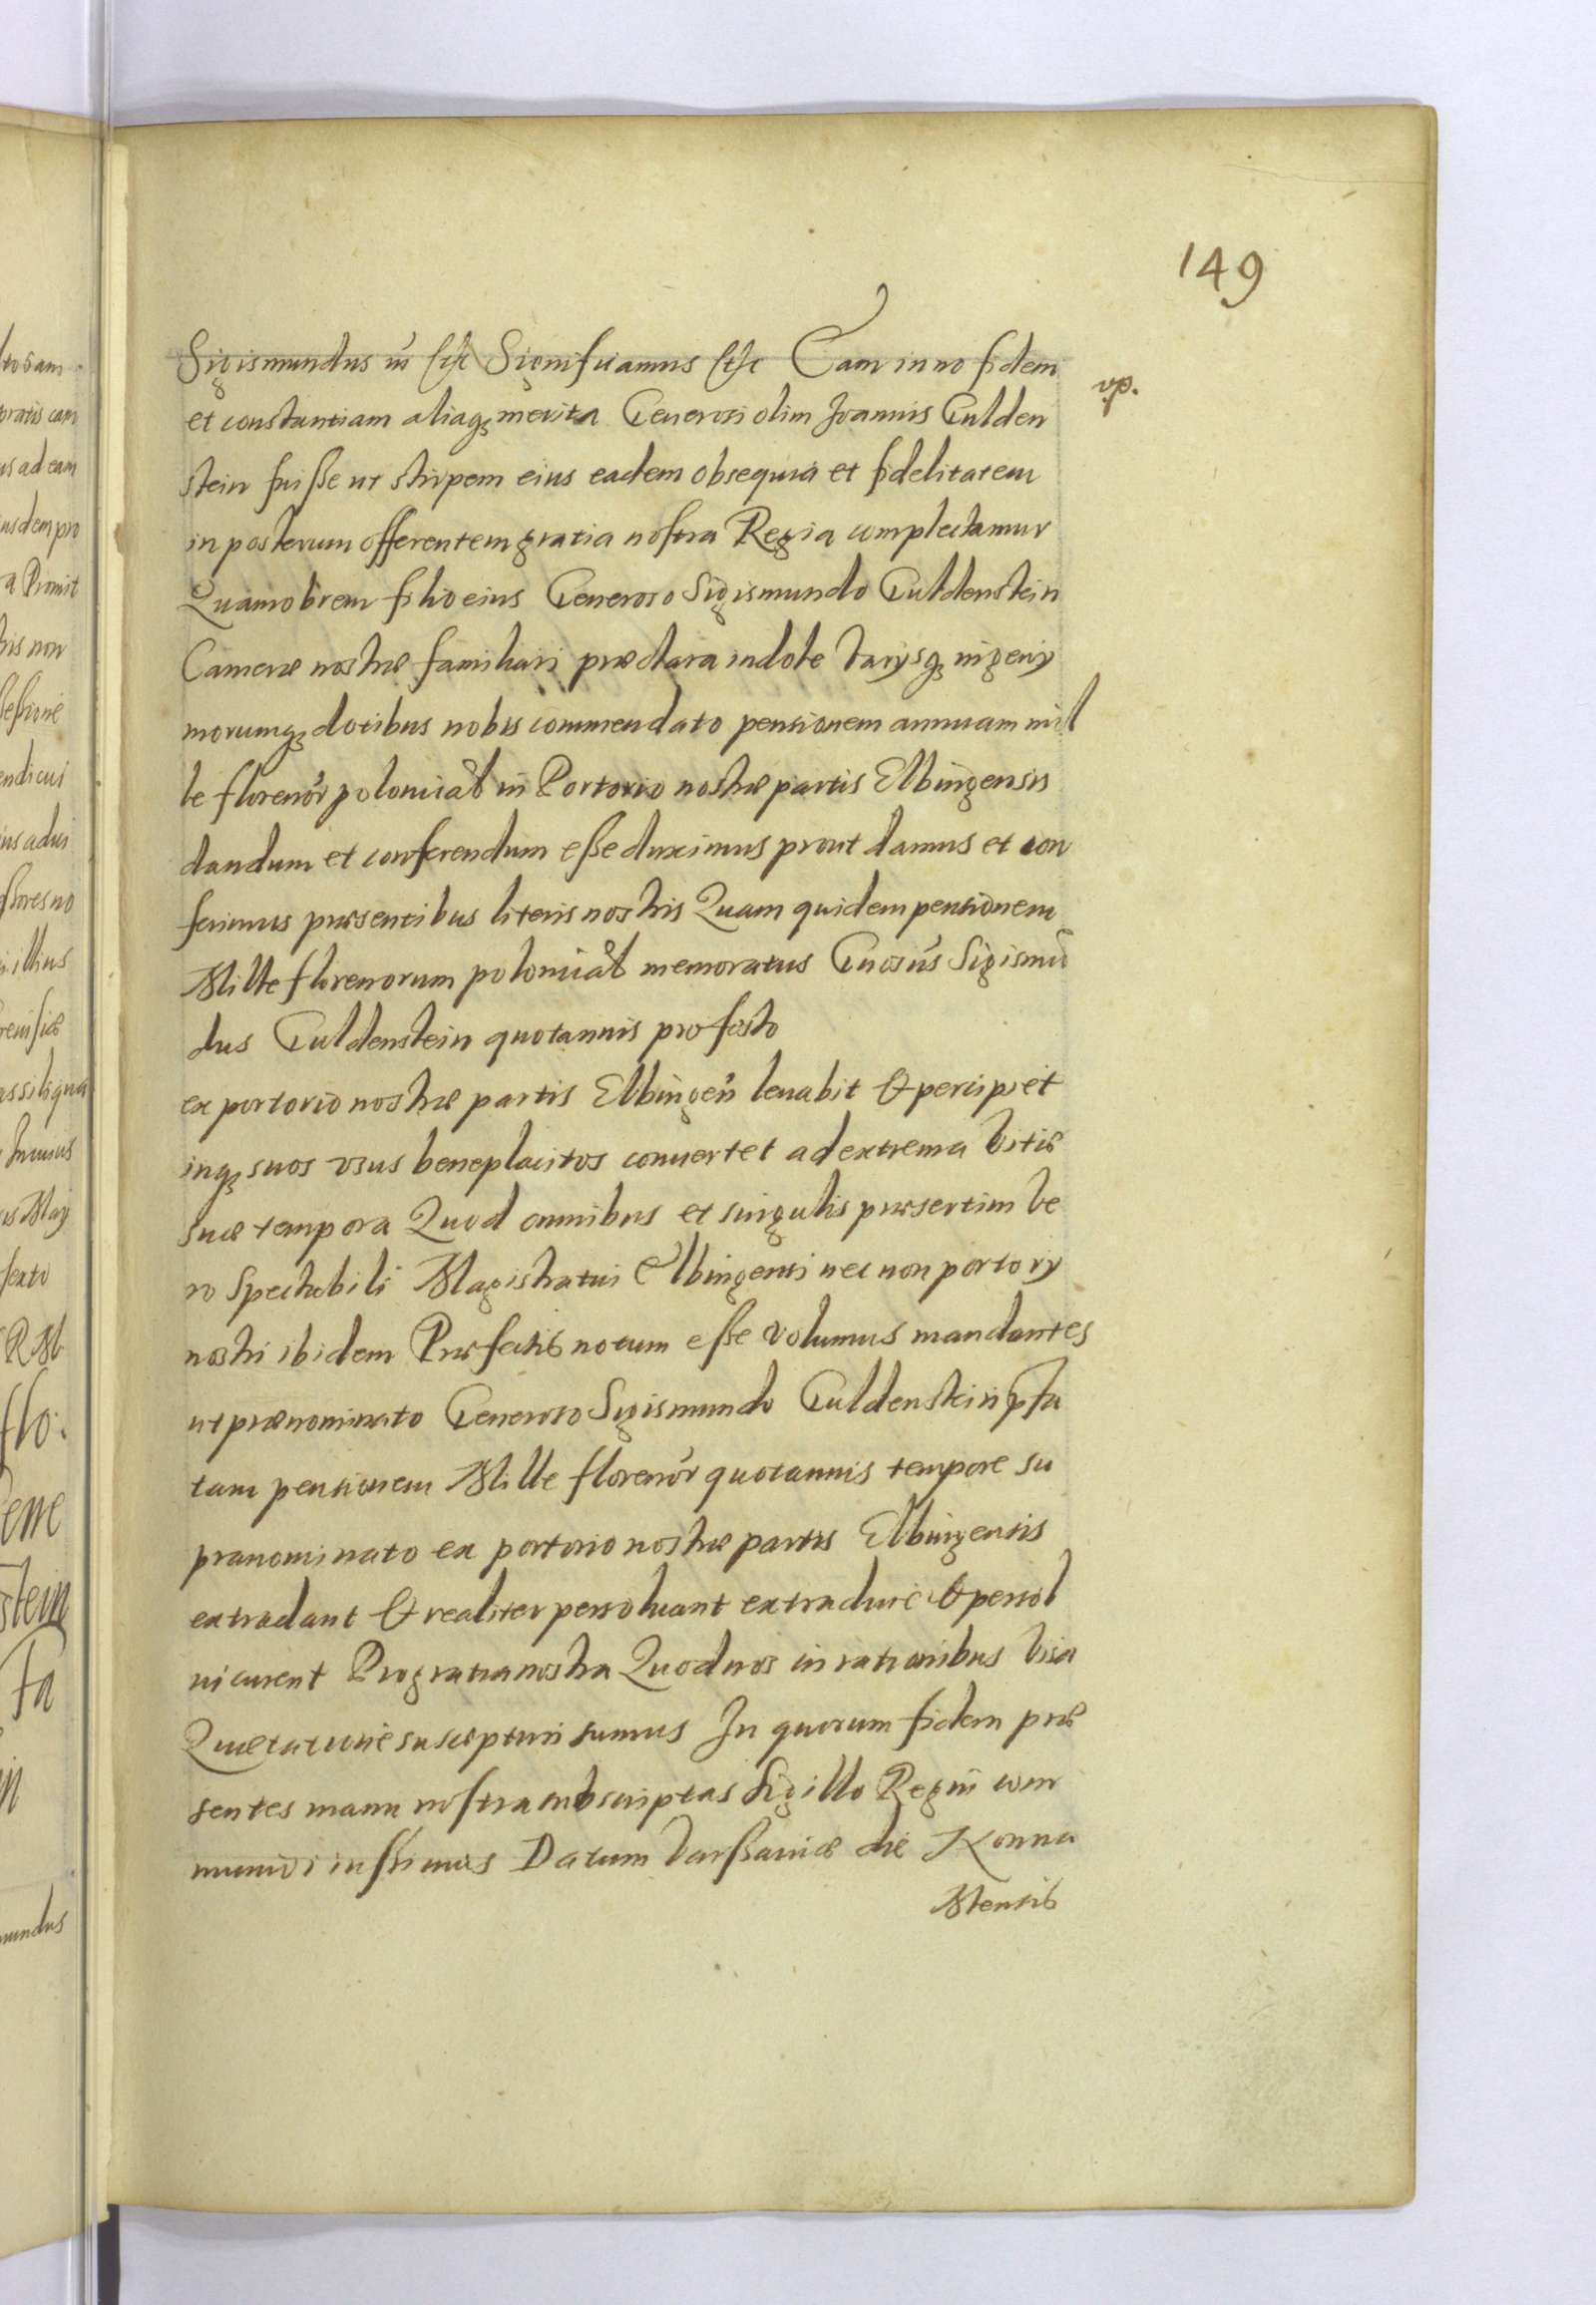 149
Sigismundus III etc Significamus etc Eam in no fidem
vp.
et constantiam aliaq; merita Generosi olim Joannis Gulden
stein fuisse ut stirpem eius eadem obsequia et fidelitatem
in posterum offerentem gratia nostra Regia complectamur
Quamobrem filio eius Generoso Sigismundo Guldenstein
Cameræ nostræ familiari præclara indole varysq; ingeny
morumq; dotibus nobis commendato pensionem annuam mil
le florenor polonical in Portorio nostræ partis Elbingensis
dandum et conferendum esse duximus prout damus et con
ferimus præsentibus literis nostris Quam quidem pensionem
Mille florenorum polonical memoratus Gnosus Sigismu
dus Guldenstein quotannis pro festo
ex portorio nostræ partis Elbingen levabit & percipiet
inq; suos vsus beneplacitos convertet ad extrema vitæ
suæ tempora Quod omnibus et singulis præsertim ve
ro Spectabili Magistratui Elbingensi nec non portory
nostri ibidem Præfectis notum esse volumus mandantes
ut prænominato Generoso Sigismundo Guldenstein præfa
tam pensionem Mille florenor quotannis tempore su
pranominato ex portorio nostræ partis Elbingensis
extradant & realiter persoluant extradiq & persol
ui curent Pro gratia nostra Quod nos in rationibus visa
Quietatione suscepturi sumus In quorum fidem præ
sentes manu nostra subscriptas Sigillo Regni com
muniri iussimus Datum Varssaviæ die Nonna
Mensis